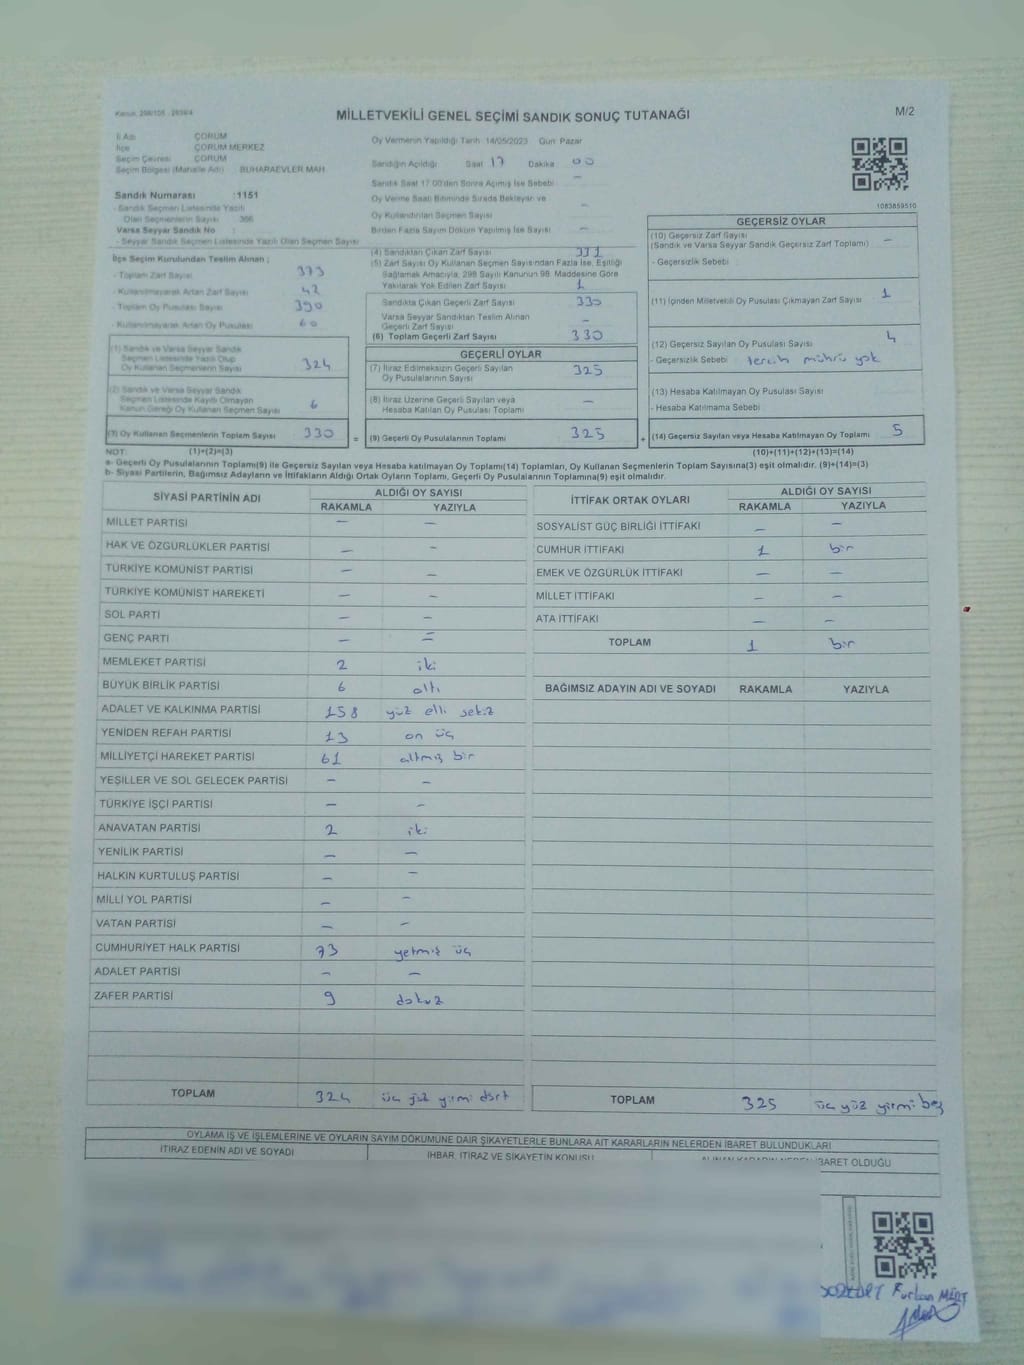 Kanun: 298/105 - 2839/4
MİLLETVEKİLİ GENEL SEÇİMİ SANDIK SONUÇ TUTANAĞI
M/2
İl Adı ÇORUM
İlçe ÇORUM MERKEZ
Seçim Çevresi ÇORUM
Seçim Bölgesi (Mahalle Adı) BUHARAEVLER MAH
Oy Vermenin Yapıldığı Tarih 14/05/2023 Gün Pazar
Sandığın Açıldığı Saat 17 Dakika 00
Sandık Saat 17:00'den Sonra Açılmış İse Sebebi –
Oy Verme Saati Bitiminde Sırada Bekleyen ve
Oy Kullandırılan Seçmen Sayısı –
Birden Fazla Sayım Döküm Yapılmış İse Sayısı –
1083859510
Sandık Numarası :1151
- Sandık Seçmen Listesinde Yazılı
Olan Seçmenlerin Sayısı : 366
Varsa Seyyar Sandık No :
- Seyyar Sandık Seçmen Listesinde Yazılı Olan Seçmen Sayısı
İlçe Seçim Kurulundan Teslim Alınan ;
- Toplam Zarf Sayısı 373
- Kullanılmayarak Artan Zarf Sayısı 42
- Toplam Oy Pusulası Sayısı 390
- Kullanılmayarak Artan Oy Pusulası 60
(1) Sandık ve Varsa Seyyar Sandık
Seçmen Listesinde Yazılı Olup
Oy Kullanan Seçmenlerin Sayısı 324
(2) Sandık ve Varsa Seyyar Sandık
Seçmen Listesinde Kayıtlı Olmayan
Kanun Gereği Oy Kullanan Seçmen Sayısı 6
(3) Oy Kullanan Seçmenlerin Toplam Sayısı 330
(4) Sandıktan Çıkan Zarf Sayısı 331
(5) Zarf Sayısı Oy Kullanan Seçmen Sayısından Fazla İse, Eşitliği
Sağlamak Amacıyla, 298 Sayılı Kanunun 98. Maddesine Göre
Yakılarak Yok Edilen Zarf Sayısı 1
Sandıkta Çıkan Geçerli Zarf Sayısı 330
Varsa Seyyar Sandıktan Teslim Alınan
Geçerli Zarf Sayısı –
(6) Toplam Geçerli Zarf Sayısı 330
GEÇERLİ OYLAR
(7) İtiraz Edilmeksizin Geçerli Sayılan
Oy Pusulalarının Sayısı 325
(8) İtiraz Üzerine Geçerli Sayılan veya
Hesaba Katılan Oy Pusulası Toplamı –
= (9) Geçerli Oy Pusulalarının Toplamı 325 +
GEÇERSİZ OYLAR
(10) Geçersiz Zarf Sayısı –
(Sandık ve Varsa Seyyar Sandık Geçersiz Zarf Toplamı)
- Geçersizlik Sebebi
(11) İçinden Milletvekili Oy Pusulası Çıkmayan Zarf Sayısı 1
(12) Geçersiz Sayılan Oy Pusulası Sayısı 4
- Geçersizlik Sebebi tercih mührü yok
(13) Hesaba Katılmayan Oy Pusulası Sayısı
- Hesaba Katılmama Sebebi
(14) Geçersiz Sayılan veya Hesaba Katılmayan Oy Toplamı 5
NOT: (1)+(2)=(3)
(10)+(11)+(12)+(13)=(14)
a- Geçerli Oy Pusulalarının Toplamı(9) ile Geçersiz Sayılan veya Hesaba katılmayan Oy Toplamı(14) Toplamları, Oy Kullanan Seçmenlerin Toplam Sayısına(3) eşit olmalıdır. (9)+(14)=(3)
b- Siyasi Partilerin, Bağımsız Adayların ve İttifakların Aldığı Ortak Oyların Toplamı, Geçerli Oy Pusulalarının Toplamına(9) eşit olmalıdır.
SİYASİ PARTİNİN ADI ALDIĞI OY SAYISI
RAKAMLA YAZIYLA
MİLLET PARTİSİ – –
HAK VE ÖZGÜRLÜKLER PARTİSİ – –
TÜRKİYE KOMÜNİST PARTİSİ – –
TÜRKİYE KOMÜNİST HAREKETİ – –
SOL PARTİ – –
GENÇ PARTİ – –
MEMLEKET PARTİSİ 2 iki
BÜYÜK BİRLİK PARTİSİ 6 altı
ADALET VE KALKINMA PARTİSİ 158 yüz elli sekiz
YENİDEN REFAH PARTİSİ 13 on üç
MİLLİYETÇİ HAREKET PARTİSİ 61 altmış bir
YEŞİLLER VE SOL GELECEK PARTİSİ – –
TÜRKİYE İŞÇİ PARTİSİ – –
ANAVATAN PARTİSİ 2 iki
YENİLİK PARTİSİ – –
HALKIN KURTULUŞ PARTİSİ – –
MİLLİ YOL PARTİSİ – –
VATAN PARTİSİ – –
CUMHURİYET HALK PARTİSİ 73 yetmiş üç
ADALET PARTİSİ – –
ZAFER PARTİSİ 9 dokuz
TOPLAM 324 üç yüz yirmi dört
İTTİFAK ORTAK OYLARI ALDIĞI OY SAYISI
RAKAMLA YAZIYLA
SOSYALİST GÜÇ BİRLİĞİ İTTİFAKI – –
CUMHUR İTTİFAKI 1 bir
EMEK VE ÖZGÜRLÜK İTTİFAKI – –
MİLLET İTTİFAKI – –
ATA İTTİFAKI – –
TOPLAM 1 bir
BAĞIMSIZ ADAYIN ADI VE SOYADI RAKAMLA YAZIYLA
TOPLAM 325 üç yüz yirmi beş
OYLAMA İŞ VE İŞLEMLERİNE VE OYLARIN SAYIM DÖKÜMÜNE DAİR ŞİKAYETLERLE BUNLARA AİT KARARLARIN NELERDEN İBARET BULUNDUKLARI
İTİRAZ EDENİN ADI VE SOYADI İHBAR, İTİRAZ VE ŞİKAYETİN KONUSU ALINAN KARARIN NEDEN İBARET OLDUĞU
Furkan MERT